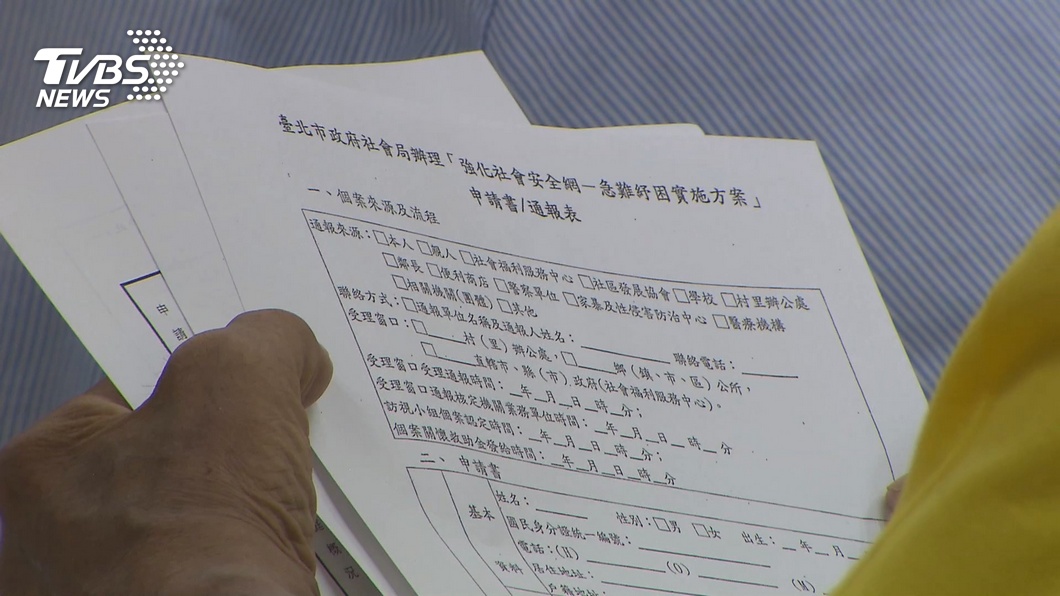 TVBS
NEWS
臺北市政府社會局辦理「強化社會安全網－急難紓困實施方案」
申請書/通報表
一、個案來源及流程
通報來源：□本人 □親人 □社會福利服務中心 □社區發展協會 □學校 □村里辦公處
□鄰長 □便利商店 □警察單位 □家暴及性侵害防治中心 □醫療機構
□相關機關(團體) □其他
聯絡方式：□通報單位名稱及通報人姓名：＿＿＿ 聯絡電話：＿＿＿
受理窗口：□＿＿＿村（里）辦公處，□＿＿＿鄉（鎮、市、區）公所，
□＿＿＿直轄市、縣（市）政府(社會福利服務中心)。
受理窗口受理通報時間：＿年＿月＿日＿時＿分；
受理窗口通報核定機關業務單位時間：＿年＿月＿日＿時＿分
訪視小組個案認定時間：＿年＿月＿日＿時＿分；
個案關懷救助金發給時間：＿年＿月＿日＿時＿分
二、申請書
基本
資料
姓名：＿＿＿ 性別：□男 □女 出生：＿年＿月
國民身分證統一編號：
電話：(H)＿＿＿(O)＿＿＿(M)
居住地址：
戶籍地址：
申
請
概
況